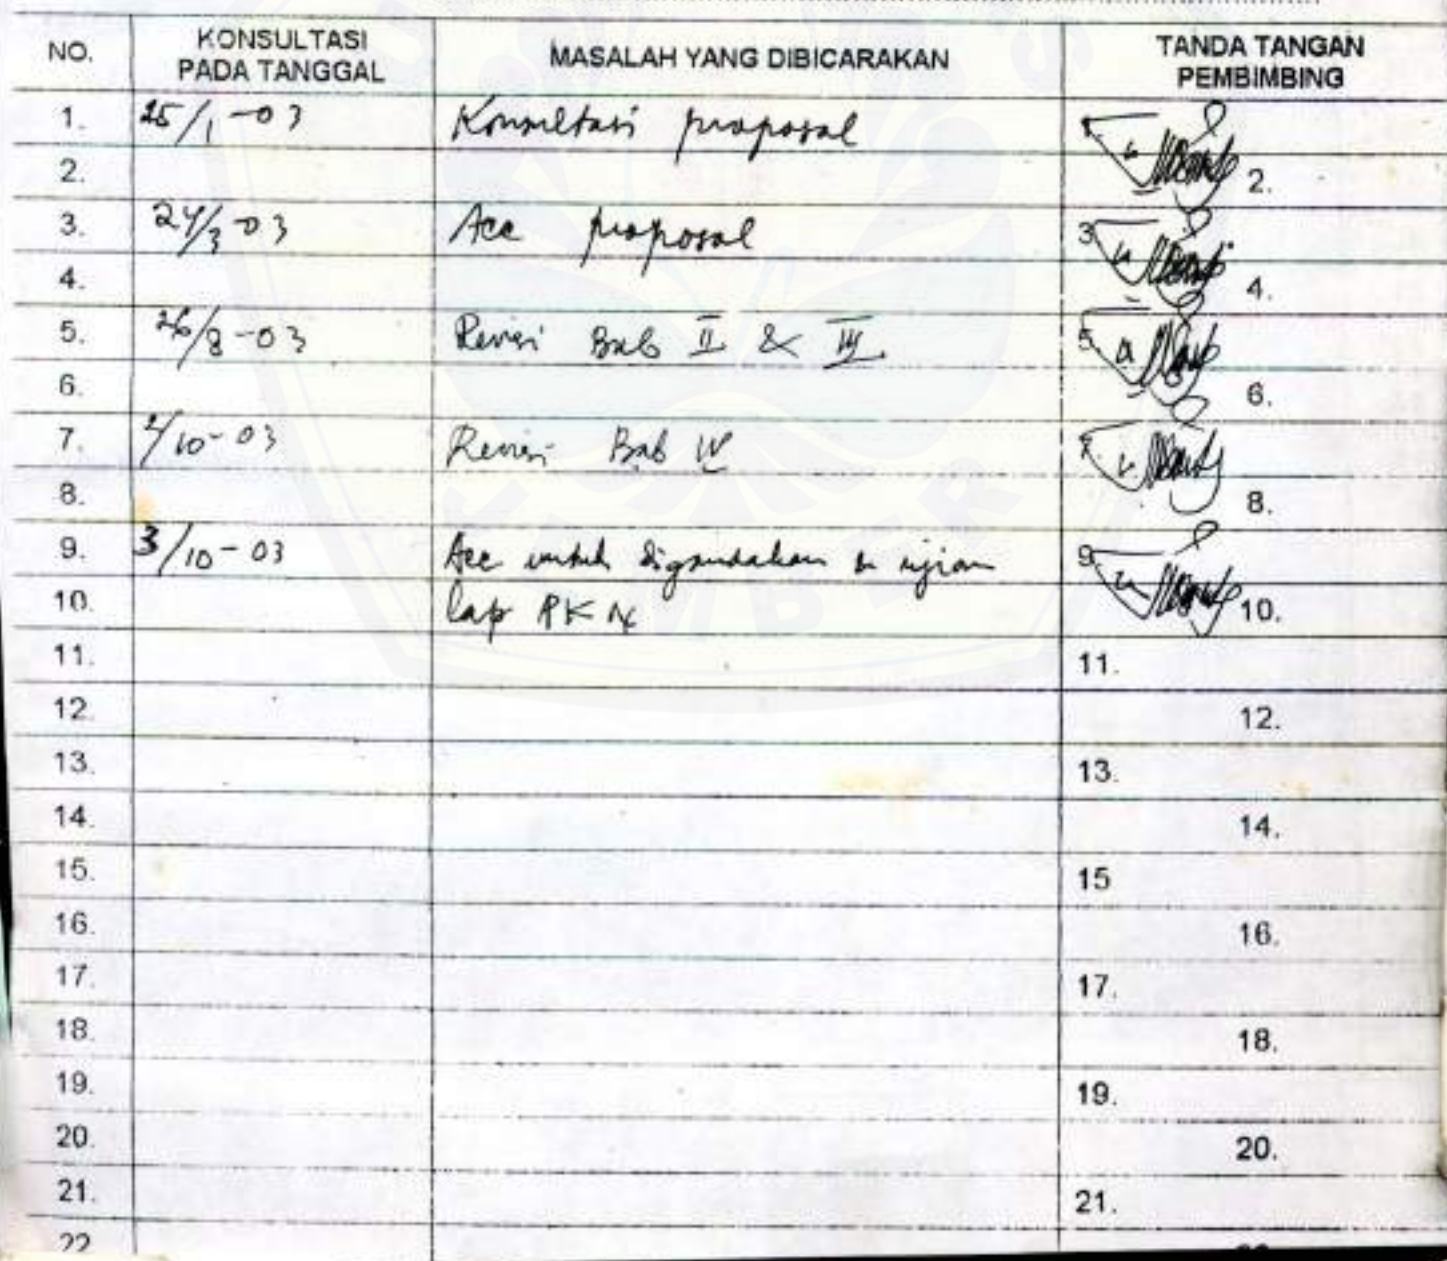 NO. KONSULTASI PADA TANGGAL MASALAH YANG DIBICARAKAN TANDA TANGAN PEMBIMBING
1. 25/1-03 Konsultasi proposal
2. 2.
3. 24/3-03 Acc proposal 3
4. 4.
5. 26/8-03 Revisi Bab II & III 5
6. 6.
7. /10-03 Revisi Bab IV 7
8. 8.
9. 3/10-03 Acc untuk digandakan ujian 9
10. lap PKN 10.
11. 11.
12. 12.
13. 13.
14. 14.
15. 15
16. 16.
17. 17.
18. 18.
19. 19.
20. 20.
21. 21.
22